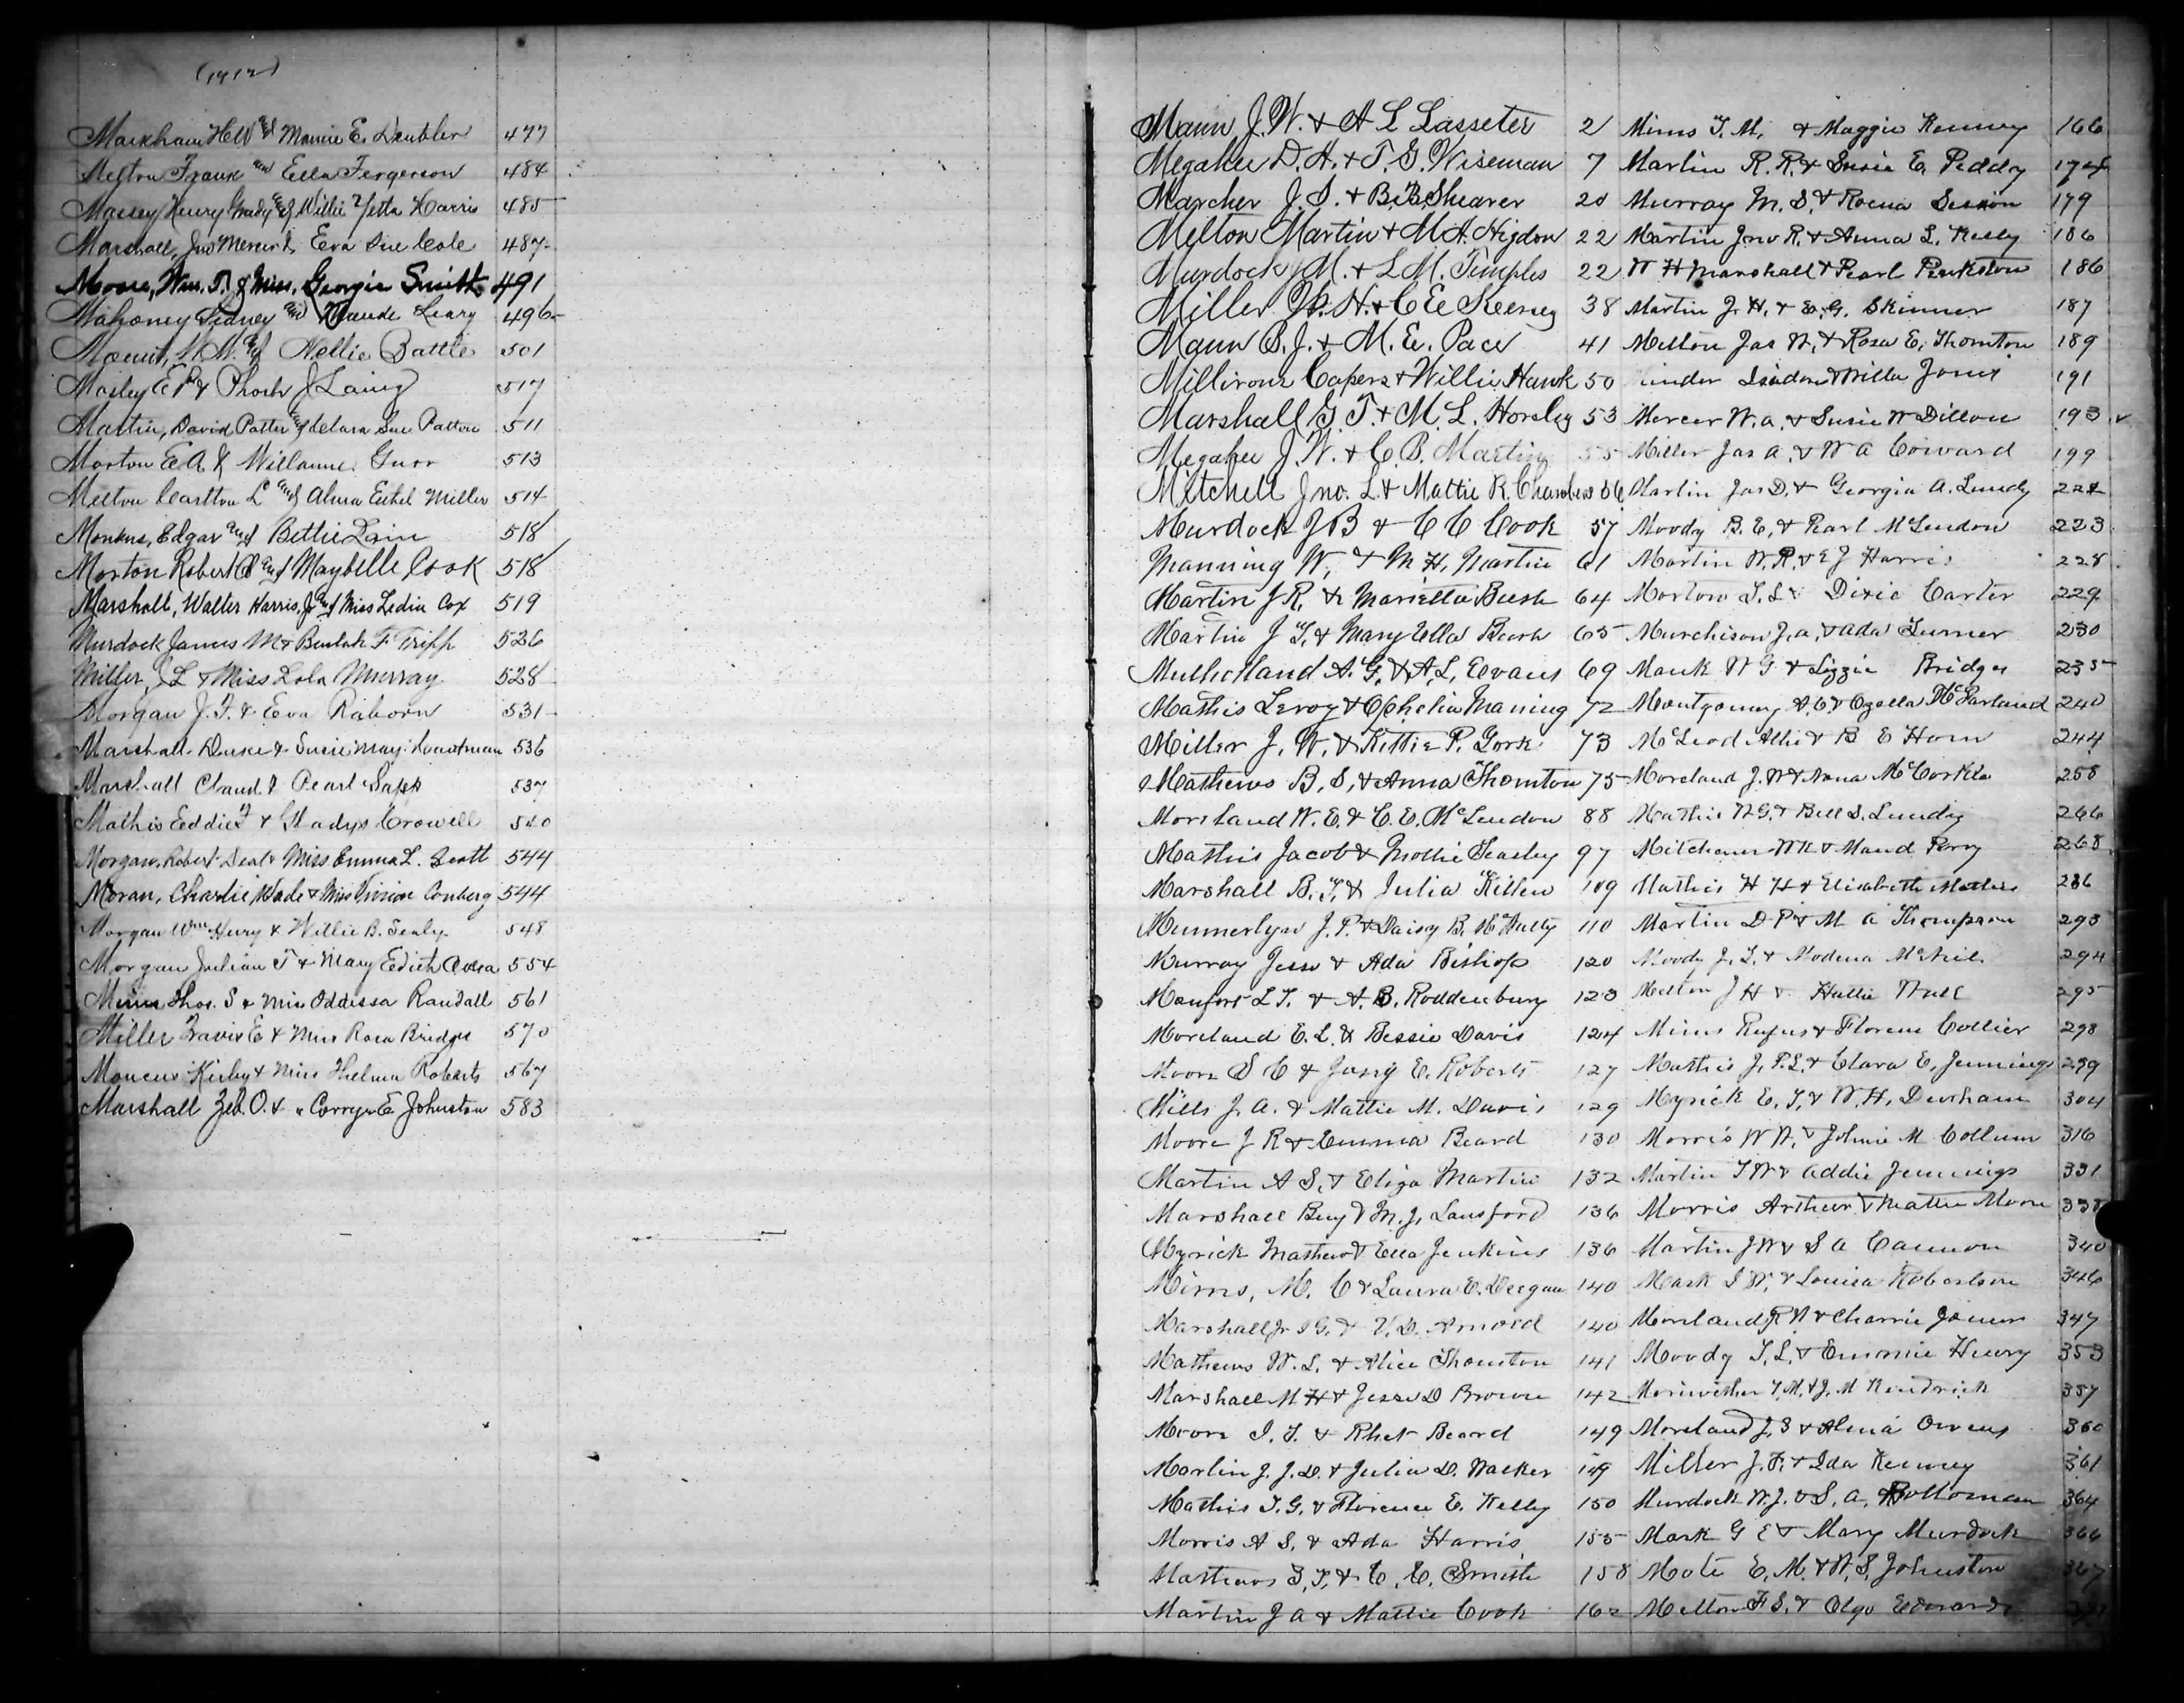 (1912)
Markham H W and Mamie E. Deubler 477
Melton Frank and Ella Fergerson 484
Massey Henry Grady and Willie Yetta Harris 485
Marshall, Jno & Eva Sue Cole 487
Moore, Wm. T. & Miss. Georgia Smith 491
Mahoney Sidney and Maude Leary 496
and Nellie Battle 501
Mosley E P & Phoebe J Laing 517
Martin, David Patter and Clara Sue Patton 511
Morton E A & Gurr 513
Melton Carlton L and Alma Ethel Miller 514
Monkus, Edgar and Bettie Lain 518
Morton Robert and Maybelle Cook 518
Marshall, Walter Harris, Jr and Miss Ledia Cox 519
Murdock James M & Beulah F Tripp 526
Miller, J L & Miss Lola Murray 528
Morgan J. F. & Eva Raborn 531
Marshall Duke & Susie May 536
Marshall Claud & Pearl Sapp 537
Mathis Eddie F & Gladys Crowell 540
Morgan, Robert Deal & Miss Emma L. Scott 544
Moran, Charlie Wade & Miss Vivian Conberg 544
Morgan Wm Henry & Willie B. Sealy 548
Morgan Julian T & Mary Edith Avera 554
Mims Thos. S & Miss Oddessa Randall 561
Miller Travis E & Miss Rosa Bridges 570
Moncus Kirby & Miss Thelma Roberts 567
Marshall Zeb. O. & " Corrye E Johnston 583
Mann J. W. & A L Lasseter 2
Megahee D. H. & T. G. Wiseman 7
Marcher J. S. & B. B. Shearer 20
Melton Martin & M. A. Higdon 22
Murdock J M. & L M. Temples 22
Miller W. H. & C E Keersey 38
Mann B. J. & M. E. Pace 41
Millirons Capers & Willie Hawk 50
Marshall G. T. & M. L. Horsley 53
Megahee J. W. & C. B. Martin 55
Mitchell Jno. L. & Mattie R. Chambers 56
Murdock J B & C C Cook 57
Manning W. & M. H. Martin 61
Martin J R. & Marietta Bush 64
Martin J. T. & Mary Ella Beark 65
Mulholland A. G. & A. L. Evans 69
Mathis Leroy & Ophelia Maning 72
Miller J. W. & Kittie P. Gork 73
Mathews B. S. & Anna Thornton 75
Moreland W. E. & C. E. McLendon 88
Mathis Jacob & Mollie Teasley 97
Marshall B. T. & Julia Killen 109
Munnerlyn J. P. & Daisy B. McNulty 110
Murray Jesse & Ada Bishop 120
Monfort L T. & A. B. Roddenbury 123
Moreland E. L. & Bessie Davis 124
Moore S C & E. Roberts 127
Mills J. A. & Mattie M. Davis 129
Moore J R & Emma Beard 130
Martin A S. & Eliza Martin 132
Marshall Benj & M. J. Lansford 136
Myrick Mathew & Ella Jenkins 136
Mims, M. C & Laura E. Deegan 140
Marshall Jr I G. & V. D. Arnold 140
Mathews W. L. & Alice Thornton 141
Marshall M H & Jesse D Brown 142
Moore I. T. & Rhet Beard 149
Martin J. J. D. & Julia D. Walker 149
Mathis T. G. & Florence E. Kelly 150
Morris A S. & Ada Harris 155
Mathews T. T. & C. C. Smith 158
Martin J A & Mattie Cook 162
Mims T. M. & Maggie Kenney 166
Martin R. R. & Susie E. Peddy 174
Murray M. S. & Roena Session 179
Martin Jno R. & Anna L. Kelly 186
W H Marshall & Pearl Pinkston 186
Martin J. H. & E. G. Skinner 187
Melton Jas W. & Rosa E. Thornton 189
Isadore & Willa Jones 191
Mercer W. A. & Susie W Dillon 193
Miller Jas A. & W A Coward 199
Martin Jas D. & Georgia A. Lundy 221
Moody B. E. & Pearl McLendon 223
Martin W. R. & E J Harris 228
Morton L. L & Dixie Carter 229
Murchison J. A. & Ada Turner 230
Mauk W G & Lizzie Bridges 235
Montgomery A. C. & Ozella McFarland 240
McLeod Allie & B E Horn 244
Moreland J. W & Nana McCorkle 258
Mathis W G. & Bell S. Lundy 266
Mitchener W H & Maud Perry 268
Mathis H H & Elisabeth Mathis 286
Martin D P & M A Thompson 293
Moody J. L. & Modena McNeil 294
Melton J H & Hattie Hall 295
Mims Rufus & Florene Collier 298
Mathis J. P. L. & Clara E. Jennings 299
Myrick E. T. & W. H. Durham 304
Morris W W. & Johnie M Collum 316
Martin T W & Addie Jennings 331
Morris Arthur & Mattie Moore 338
Martin J W & S A Cannon 340
Mask I W. & Louisa Robertson 346
Moreland R N & Charrie Joiner 347
Moody T. L. & Emmie Henry 353
Meriwether T. M. & J. M Kendrick 357
Moreland J. S & Alma Owens 360
Miller J. F. & Ida Kenney 361
Murdock W. J. & S. A. Bolloman 364
Mask G E & Mary Murdock 366
Mote E. M. & W. S. Johnston 367
Melton F S. & Olga Edwards